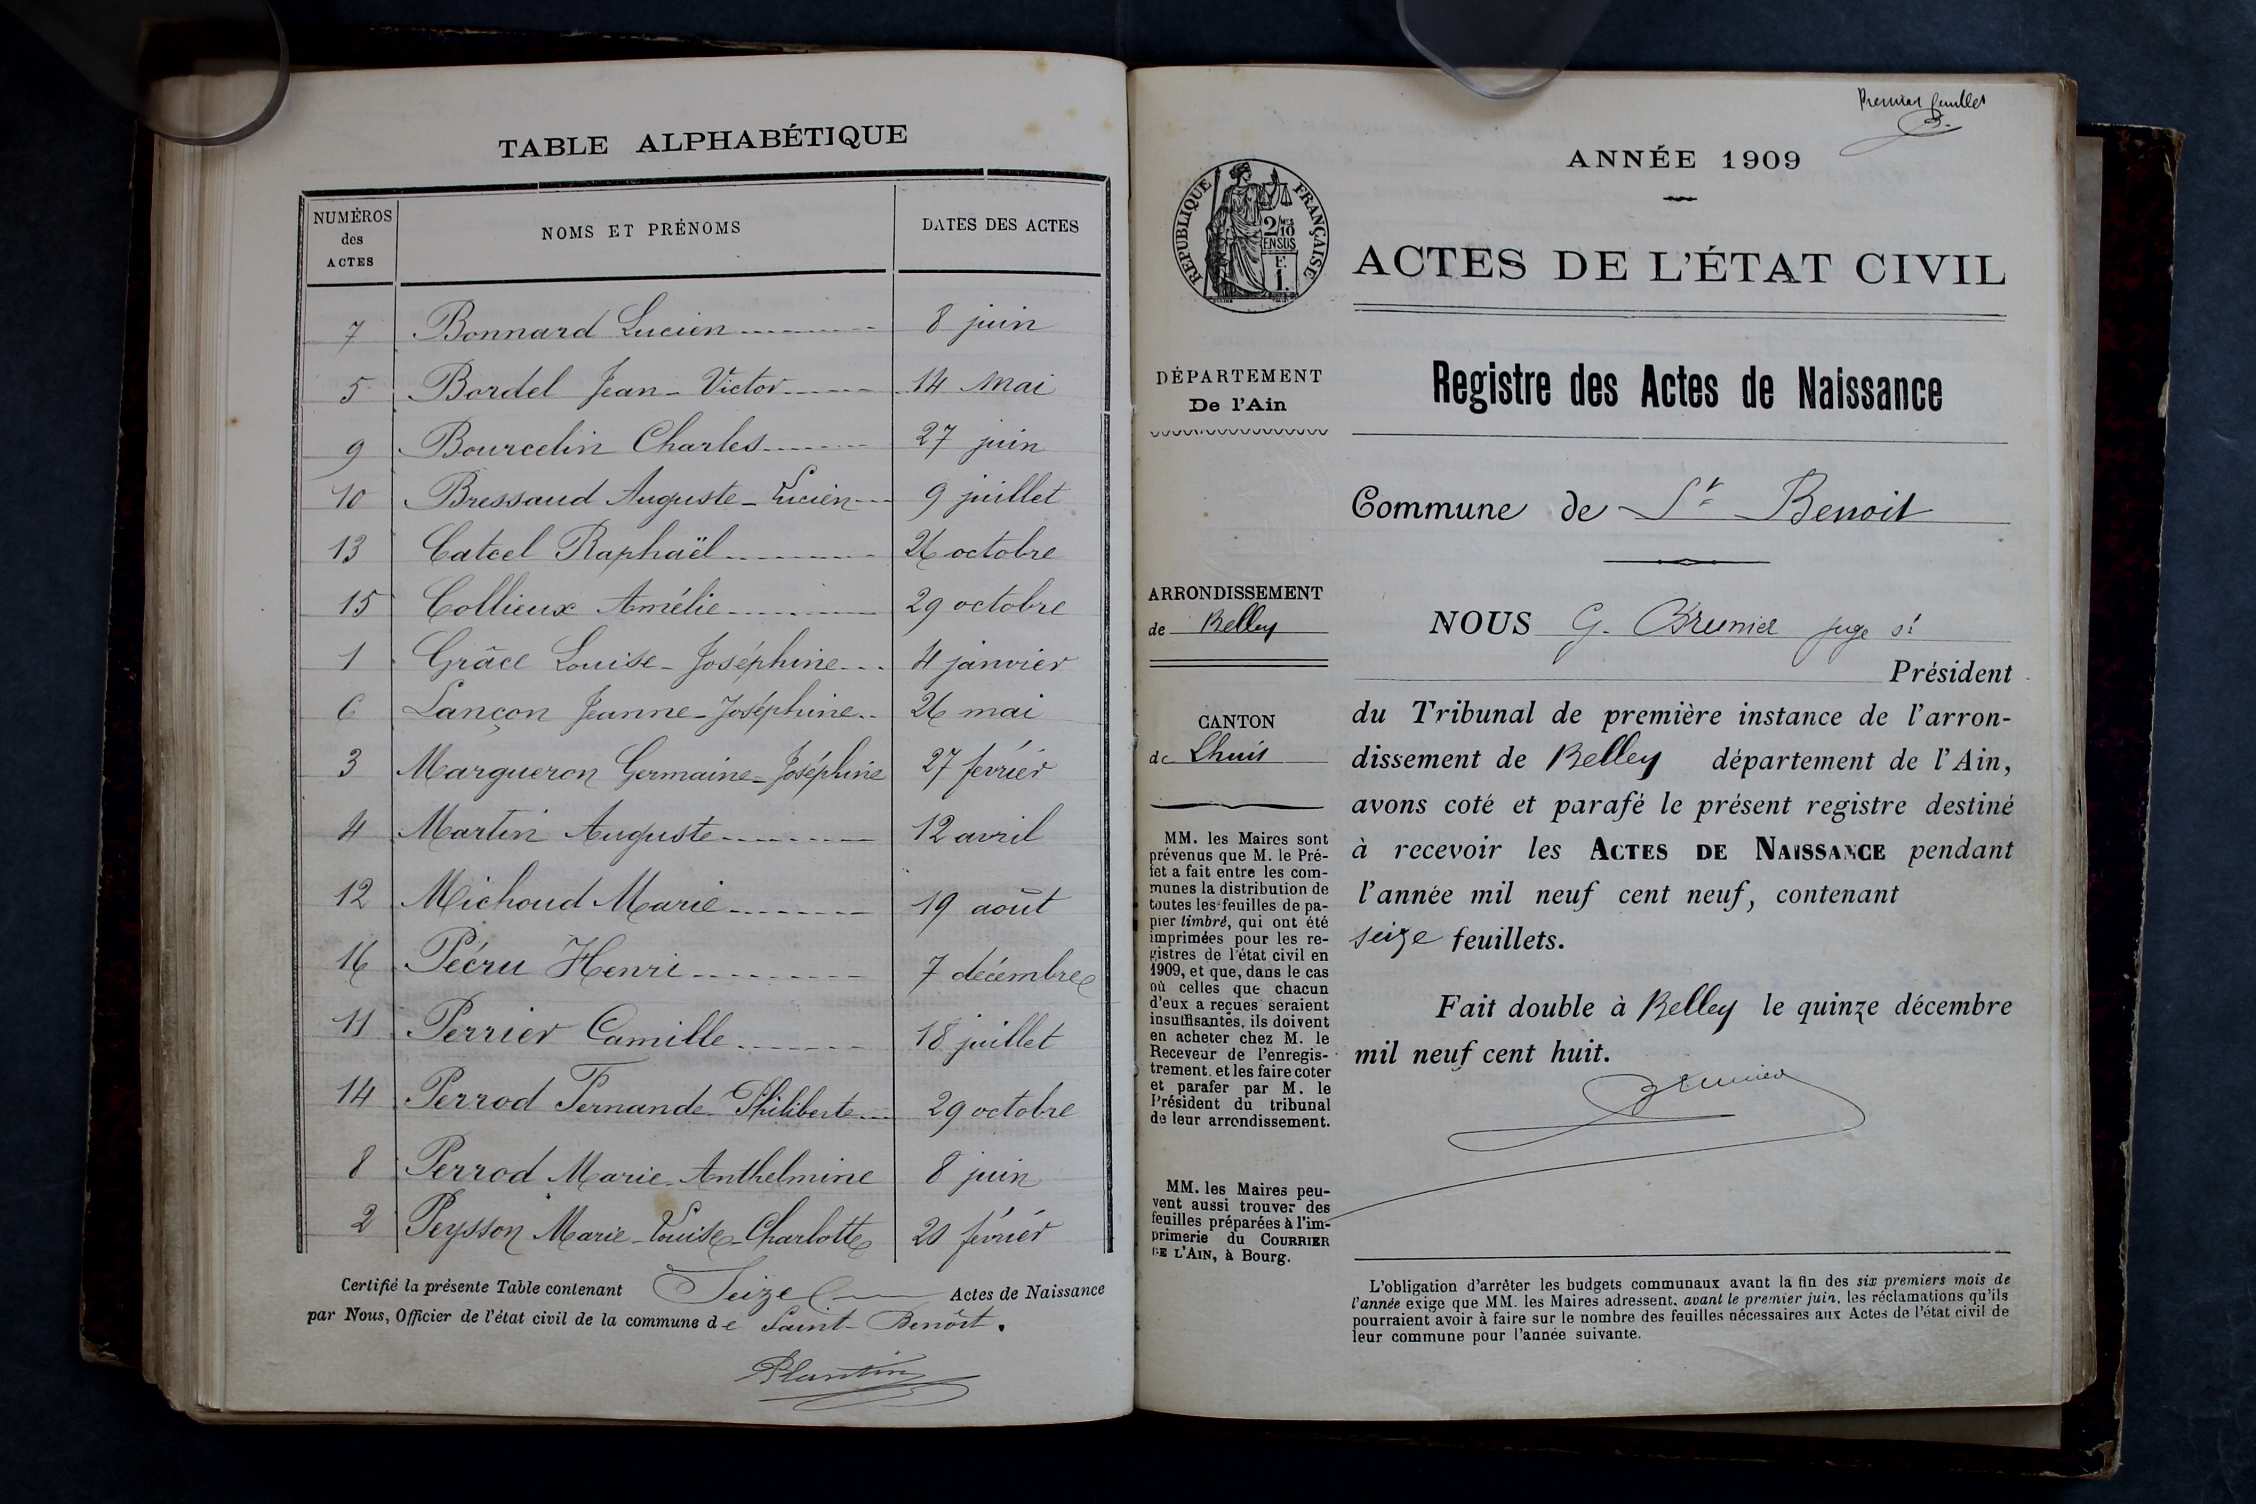 TABLE ALPHABÉTIQUE
NUMÉROS des ACTES NOMS ET PRÉNOMS DATES DES ACTES
7 Bonnard Lucien 8 juin
5 Bordel Jean-Victor 14 Mai
9 Bourcelin Charles 27 juin
10 Bressaud Auguste-Lucien 9 juillet
13 Catcel Raphaël 26 octobre
15 Collieux Amélie 29 octobre
1 Grâce Louise-Joséphine 4 janvier
6 Lançon Jeanne-Joséphine 26 mai
3 Margueron Germaine-Joséphine 27 février
4 Martin Auguste 12 avril
12 Michoud Marie 19 août
16 Pécru Henri 7 décembre
11 Perrier Camille 18 juillet
14 Perrod Fernande Philiberte 29 octobre
8 Perrod Marie-Anthelmine 8 juin
2 Peysson Marie-Louise-Charlotte 20 février
Certifié la présente Table contenant Seize Actes de Naissance
par Nous, Officier de l'état civil de la commune de Saint-Benôit.
Plantin
Premier feuillet
B.
ANNÉE 1909
RÉPUBLIQUE FRANÇAISE
2/10
EN SUS
1 F.
ACTES DE L'ÉTAT CIVIL
DÉPARTEMENT
De l'Ain
Registre des Actes de Naissance
Commune de St Benoit
ARRONDISSEMENT
de Belley
NOUS G. Brunier juge st
Président
CANTON
de Lhuis
du Tribunal de première instance de l'arron-
dissement de Belley département de l'Ain,
avons coté et parafé le présent registre destiné
à recevoir les ACTES DE NAISSANCE pendant
l'année mil neuf cent neuf, contenant
seize feuillets.
Fait double à Belley le quinze décembre
mil neuf cent huit.
Brunier
MM. les Maires sont
prévenus que M. le Pré-
fet a fait entre les com-
munes la distribution de
toutes les feuilles de pa-
pier timbré, qui ont été
imprimées pour les re-
gistres de l'état civil en
1909, et que, dans le cas
où celles que chacun
d'eux a reçues seraient
insuffisantes, ils doivent
en acheter chez M. le
Receveur de l'enregis-
trement, et les faire coter
et parafer par M. le
Président du tribunal
de leur arrondissement.
MM. les Maires peu-
vent aussi trouver des
feuilles préparées à l'im-
primerie du COURRIER
DE L'AIN, à Bourg.
L'obligation d'arrêter les budgets communaux avant la fin des six premiers mois de
l'année exige que MM. les Maires adressent, avant le premier juin, les réclamations qu'ils
pourraient avoir à faire sur le nombre des feuilles nécessaires aux Actes de l'état civil de
leur commune pour l'année suivante.